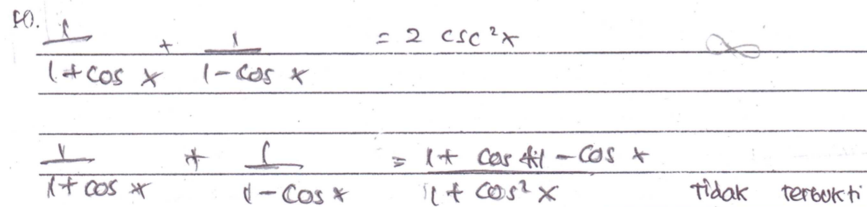 50. 1/(1+cos x) + 1/(1-cos x) = 2 csc²x
1/(1+cos x) + 1/(1-cos x) = (1+ cos x+1-cos x)/(1+cos²x) tidak terbukti